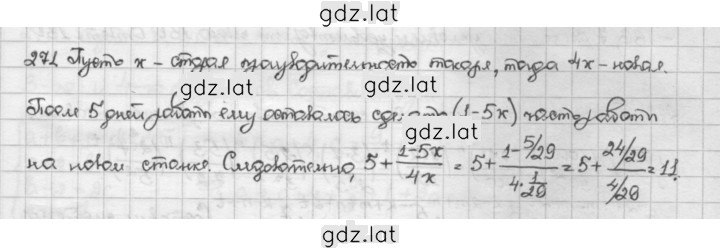 gdz.lat
271 Пусть x - старая производительность токаря, тогда 4x - новая.
gdz.lat
После 5 дней работы ему оставалось сделать (1-5x) часть работы
gdz.lat
на новом станке. Следовательно, 5 + (1-5x)/(4x) = 5 + (1-5/29)/(4·1/29) = 5 + (24/29)/(4/29) = 11.
gdz.lat